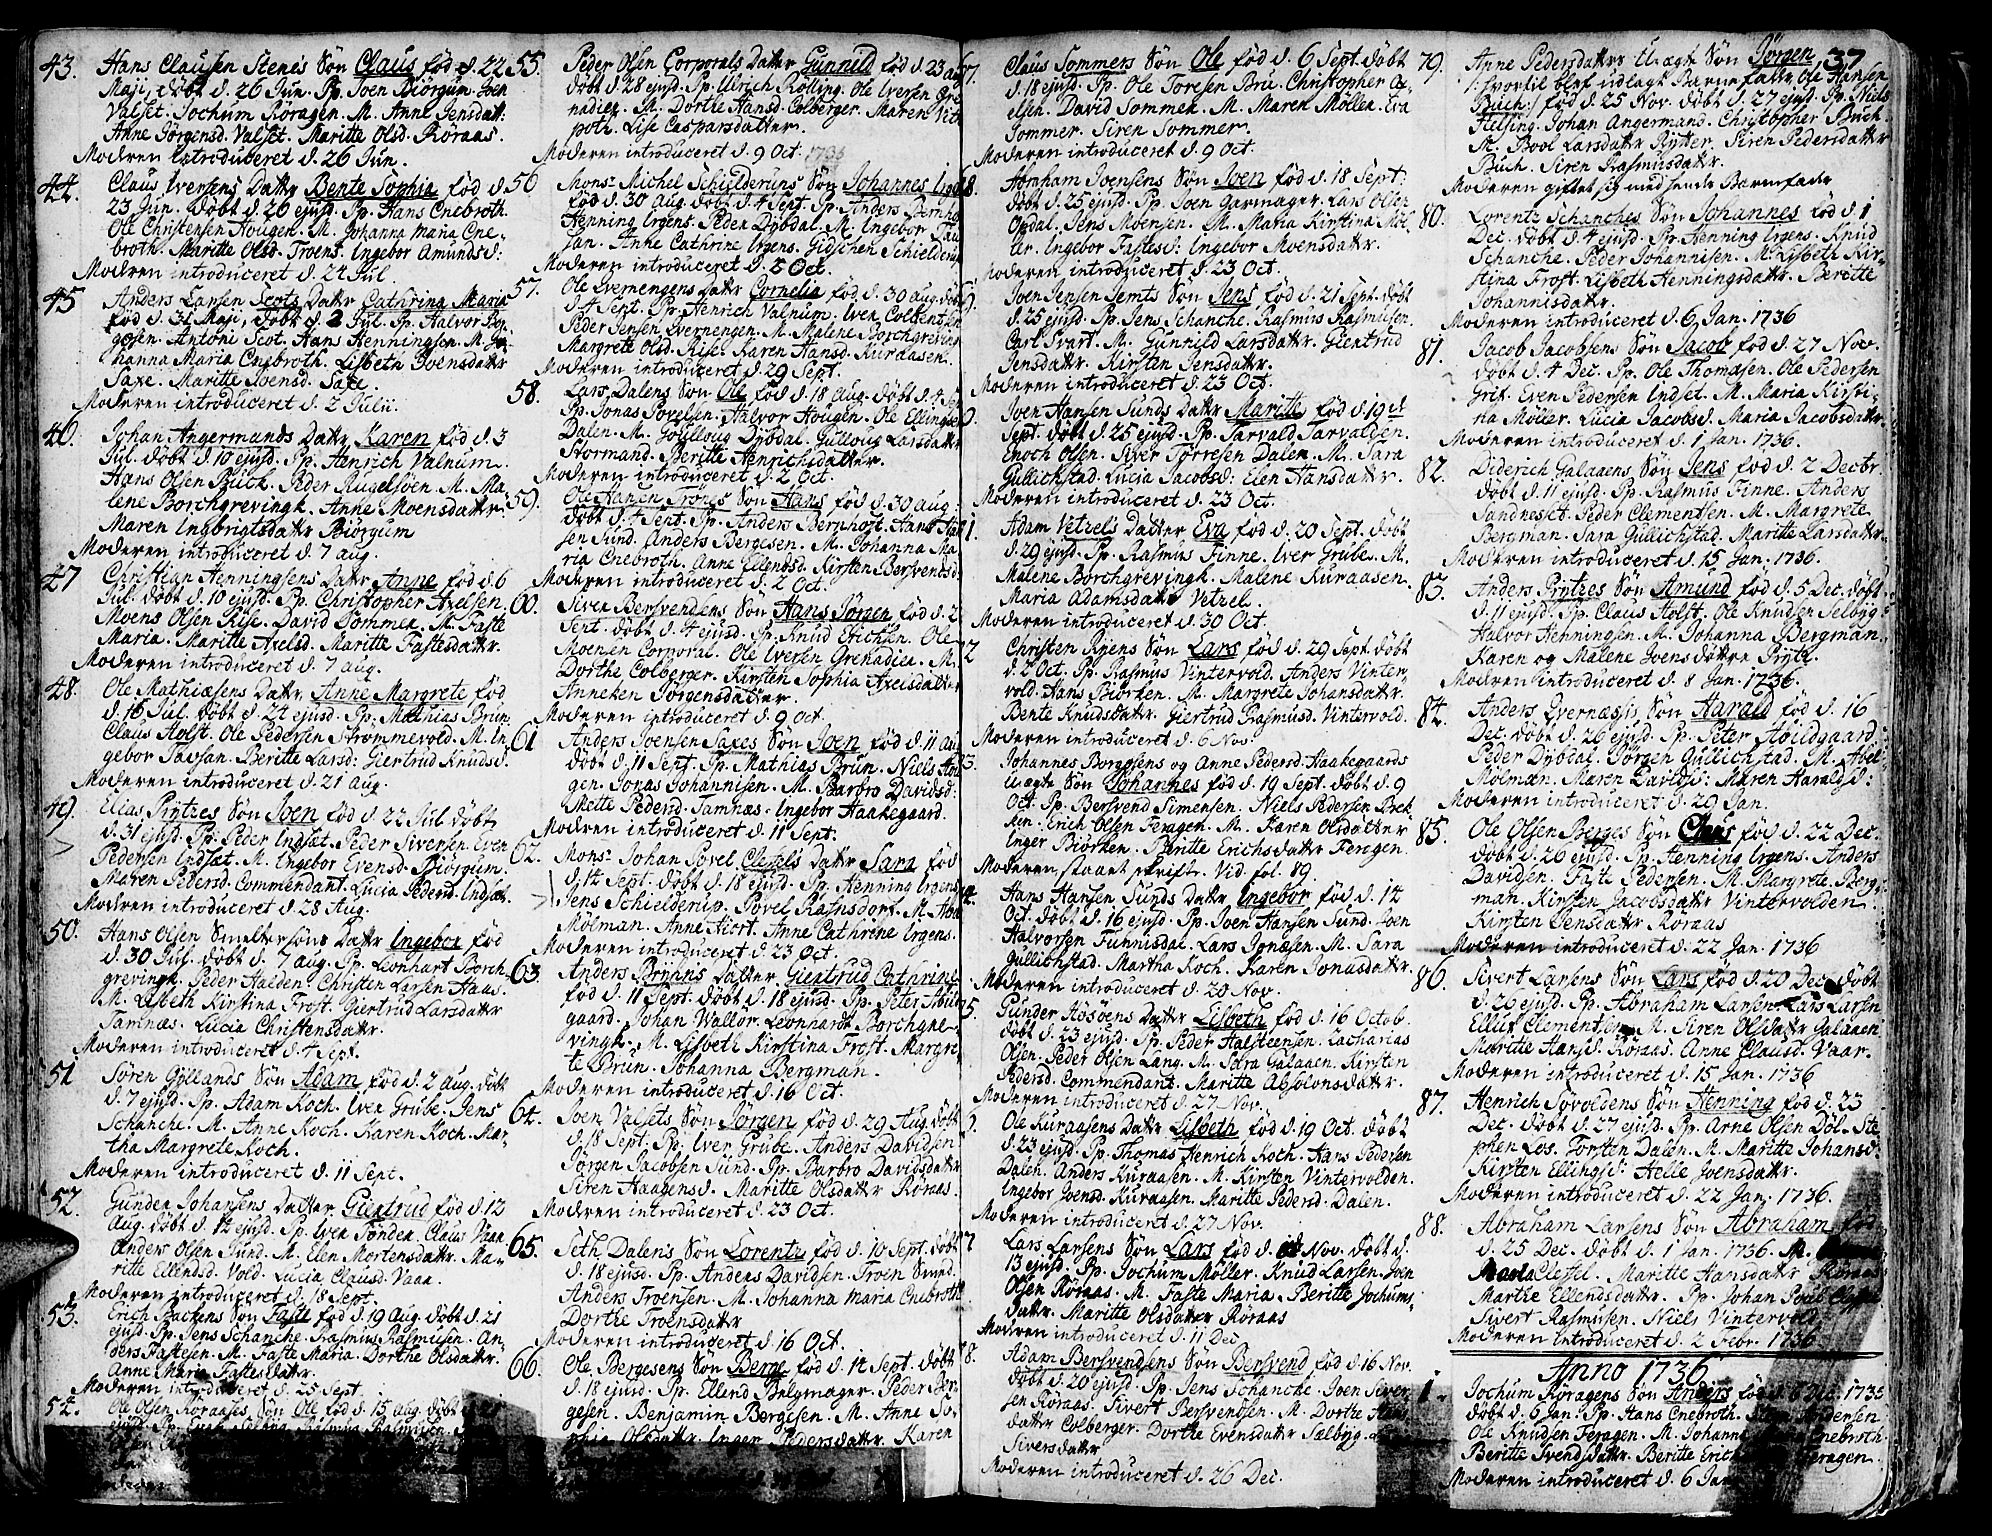 43. Hans Clausen Stenes Søn Claus fød d. 22
Maji, døbt d. 26 Jun. Pp. Joen Biörgum. Joen
Valset. Jochum Röragen. M. Anne Jensdatt:
Anne Jörgensd. Valset. Maritte Olsd. Röraas.
Moderen introduceret d. 26 Jun.
44. Claus Iversens Dattr Bente Sophia fød d.
23 Jun. døbt d. 26 ejusd. Pp. Hans Cnebroth.
Ole Christensen Hougen. M. Johanna Maria Cne-
broth. Maritte Olsd. Troent. Ingebor Amundsd:
Moderen introduceret d. 24 Jul.
45 Anders Larsen Scots Dattr Cathrina Maria
fød d. 31 Maji, døbt d. 2 Jul. Pp. Halvor Bör-
gesen. Antoni Scot. Hans Henningsen. M. Jo-
hanna Maria Cnebroth. Lisbeth Joensdattr
Saxe. Maritte Joensd. Saxe.
Moderen introduceret d. 2 Julii.
46. Johan Angermands Dattr Karen fød d. 3
Jul. døbt d. 10 ejusd. Pp. Henrich Valnum.
Hans Olsen Buch. Peder Rugelsöen. M. Ma-
lene Borchgrevingk. Anne Moensdattr.
Maren Ingbrigtsdattr Biörgum
Moderen introduceret d. 7 aug.
47 Christian Henningsens Dattr Anne fød d. 6
Jul. døbt d. 10 ejusd. Pp. Christopher Axelsen.
Moens Olsen Rise. David Sommer. M. Faste
Maria. Maritte Axelsd. Maritte Fastesdattr.
Moderen introduceret d. 7 aug.
48. Ole Mathiæsens Dattr Anne Margrete fød
d. 16 Jul. døbt d. 24 ejusd. Pp. Mathias Brun.
Claus Holst. Ole Pedersen Strömmevold. M. In-
gebor Tavsan. Beritte Larsd: Giertrud Knudsd.
Moderen introduceret d. 21 Aug.
49. Elias Prytzes Søn Joen fød d. 22 Jul. døbt
d. 31 ejusd. Pp. Peder Indset. Peder Sivensen. Even
Pedersen Indsæt. M. Ingebor Evensd. Biörgum.
Maren Pedersd. Commendant. Lucia Pedersd. Indsæt.
Moderen introduceret d. 28 Aug.
50. Hans Olsen Smeltersöns Dattr Ingebor fød
d. 30 Jul. døbt d. 7 aug. Pp. Leonhart Borch-
grevingk. Peder Halden. Christen Larsen Haas.
M. Lisbeth Kirstina Frost. Giertrud Larsdattr
Tamnæs. Lucia Christensdattr.
Moderen introduceret d. 4 Sept.
51 Sören Gyllands Søn Adam fød d. 2 aug. døbt
d. 7 ejusd. Pp. Adam Koch. Iver Grube. Jens
Schanche. M. Anne Koch. Karen Koch. Mar-
tha Margrete Koch.
Moderen introduceret d. 11 Sept.
52. Gunder Johansens Datter Giertrud fød d. 12
Aug. døbt d. 14 ejusd. Pp. Iver Tönder. Claus Vaar.
Anders Olsen Sund. M. Elen Mortensdattr. Ma-
ritte Ellensd. Vold. Lucia Clausd. Vaar.
Moderen introduceret d. 18 Sept.
53. Erich Backens Søn Faste fød d. 19 Aug. døbt d. 21
ejusd. Pp. Jens Schanche. Rasmus Rasmusen. An-
ders Fastesen. M. Faste Maria. Dorthe Olsdattr.
Anne Maria Fastesdattr.
Moderen introduceret d. 25 Sept.
54. Ole Olsen Röraases Søn Ole fød d. 15 aug. døbt
55. Peder Olsen Corporals Dattr Gunnild fød d. 23 aug
døbt d. 28 ejusd. Pp. Ulrich Rolling. Ole Iversen Gre-
nadier. M. Dorthe Hansd. Colberger. Maren Vit-
poth. Lise Caspersdatter.
Moderen introduceret d. 9 Oct. 1735
56 Mons: Michel Schielderups Søn Johannes Irge
fød d. 30 aug. døbt d. 4 Sept. Pp. Anders Bernhof
Henning Irgens. Peder Dybdal. M. Ingebor Tau-
san. Anne Cathrine Irgens. Gidschen Schielderup
Moderen introduceret d. 5 Oct.
57. Ole Evernengens Dattr Cornelia fød d. 30 aug. døbt
d. 4 Sept. Pp. Henrich Valnum. Iver Colbentsen
Peder Jensen Evernengen. M. Malene Borchgreving
Margrete Olsd. Rise. Karen Hansd. Kuraasen.
Moderen introduceret d. 29 Sept.
58. Lars Dalens Søn Ole fød d. 18 aug. døbt d. 4 Sept
Pp. Jonas Povelsen. Halvor Hougen. Ole Ellingsen
Dalen. M. Goulloug Dybdal. Gulloug Larsdattr
Stormand. Beritte Henrichsdatter.
Moderen introduceret d. 2 Oct.
59. Ole Hansen Trönes Søn Hans fød d. 30 aug.
døbt d. 4 Sept. Pp. Anders Bernhoft. Hans
sen Sund. Anders Bergesen. M. Johanna Ma-
ria Cnebroth. Anne Ellendsd. Kirsten Bersvendsd.
Moderen introduceret d. 2 Oct.
60. Siver Bersvendsens Søn Hans Jörgen fød d. 2
Sept. døbt d. 4 ejusd. Pp. Knud Erichsen. Ole
Moensen Corporal. Ole Iversen Grenadier. M.
Dorthe Colberger. Kirsten Sophia Axelsdatter
Anneken Jörgensdatter.
Moderen introduceret d. 9 Oct.
61 Anders Joensen Saxes Søn Joen fød d. 11 Aug
døbt d. 11 Sept. Pp. Mathias Brun. Niels Hou-
gen. Jonas Johannisen. M. Barbro Davidsd:
Mette Pedersd. Tamnæs. Ingebor Haakegaard.
Moderen introduceret d. 11 Sept.
62. Mons: Johan Povel Clesels Dattr Sara fød
d. 14 Sept. døbt d. 18 ejusd. Pp. Henning Irgens
Jens Schielderup. Povel Ramsdorf. M. Abel
Mölman. Anne Hiort. Anne Cathrine Irgens.
Moderen introduceret d. 23 Oct.
63. Anders Bryns Datter Giertrud Cathrine
fød d. 11 Sept. døbt d. 18 ejusd. Pp. Peter Höid-
gaard. Johan Wallör. Leonhard Borchgre-
vingk. M. Lisbeth Kirstina Frost. Margre-
te Brun. Johanna Bergman.
Moderen introduceret d. 16 Oct.
64. Joen Valsets Søn Jörgen fød d. 29 Aug. døbt
d. 18 Sept. Pp. Iver Grube. Anders Davidsen
Jörgen Jacobsen Sund. M. Barbro Davidsdattr
Siren Haagensd. Maritte Olsdattr Röraas
Moderen introduceret d. 23 Oct.
65. Seth Dalens Søn Lorentz fød d. 10 Sept. døbt
d. 18 ejusd. Pp. Anders Davidsen. Troen Smed.
Anders Troensen. M. Johanna Maria Cnebroth
Dorthe Troensdattr
Moderen introduceret d. 16 Oct.
66. Ole Bergesens Søn Berge fød d. 14 Sept. døbt
d. 18 ejusd. Pp. Ellend Belgmager. Peder Ber-
gesen. Benjamin Bergesen. M. Anne So-
phia Olsdattr. Inger Pedersdattr. Karen
7. Claus Sommers Søn Ole fød d. 6 Sept. døbt
d. 18 ejusd. Pp. Ole Toresen Boru. Christopher A-
elsen. David Sommer. M. Maren Möller. Eva
Sommer. Siren Sommer.
Moderen introduceret d. 9 Oct.
8. Abraham Joensens Søn Joen fød d. 18 Sept:
døbt d. 25 ejusd. Pp. Joen Garmager. Lars Olsen
Opdal. Jens Moensen. M. Maria Kirstina Möl-
ler. Ingebor Fastesd: Ingebor Moensdattr.
Moderen introduceret d. 23 Oct.
9. Joen Jensen Jemts Søn Jens fød d. 21 Sept. døbt
d. 25 ejusd. Pp. Jens Schanche. Rasmus Rasmusen.
Carl Svart. M. Gunnild Larsdattr. Giertrud
Jensdattr. Kirsten Jensdattr.
Moderen introduceret d. 23 Oct.
0. Joen Hansen Sunds Dattr Maritte fød d. 19
Sept. døbt d. 25 ejusd. Pp. Tarvald Tarvaldsen.
Enoch Olsen. Siver Torresen Dalen. M. Sara
Gullichstad. Lucia Jacobsd: Elen Hansdattr.
Moderen introduceret d. 23 Oct.
1 Adam Vetzels Datter Eva fød d. 20 Sept. døbt
d. 29 ejusd. Pp. Rasmus Finne. Iver Grube. M.
Malene Borchgrevingk. Malene Kuraasen.
Maria Adamsdattr Vetzel.
Moderen introduceret d. 30 Oct.
2 Christen Ryens Søn Lars fød d. 29 Sept. døbt
d. 2 Oct. Pp. Rasmus Vintervold. Anders Vinter-
vold. Hans Biörken. M. Margrete Johansdattr.
Bente Knudsdattr. Giertrud Rasmusd. Vintervold.
Moderen introduceret d. 6 Nov.
3. Johannes Borgosens og Anne Pedersd. Haakegaards
uægte Søn Johannes fød d. 19 Sept. døbt d. 9
Oct. Pp. Bersvend Simensen. Niels Pedersen Brek-
ken. Erich Olsen Feragen. M. Karen Olsdatter
Inger Biörken. Bente Erichsdattr Feragen.
Moderen staaet skrift. Vid. fol. 89.
4. Hans Hansen Sunds Dattr Ingebor fød d. 14
Oct. døbt d. 16 ejusd. Pp. Joen Hansen Sund. Joen
Halvorsen Funnisdal. Lars Jonæsen. M. Sara
Gullichstad. Martha Koch. Karen Jonasdattr.
Moderen introduceret d. 20 Nov.
5. Gunder Aasöens Dattr Lisbeth fød d. 16 Octob.
døbt d. 23 ejusd. Pp. Peder Halsteensen. Zacharias
Olsen. Peder Olsen Lang. M. Sara Galaaen. Kirsten
Pedersd. Commendant. Maritte Absolonsdattr.
Moderen introduceret d. 27 Nov.
6. Ole Kuraasens Dattr Lisbeth fød d. 19 Oct. døbt
d. 23 ejusd. Pp. Thomas Henrich Koch. Hans Pedersen
Dalen. Anders Kuraasen. M. Kirsten Vintervolden.
Ingebor Joensd. Kuraasen. Maritte Pedersd. Dalen.
Moderen introduceret d. 27 Nov.
7 Lars Larsens Søn Lars fød d. Nov. døbt d.
13 ejusd. Pp. Jochum Möller. Knud Larsen. Joen
Olsen Röraas. M. Faste Maria. Beritte Jochums-
dattr. Maritte Olsdattr Röraas
Moderen introduceret d. 11 Dec.
8. Adam Bersvendsens Søn Bersvend fød d. 16 Nov.
døbt d. 20 ejusd. Pp. Jens Schanche. Joen Siver-
sen Röraas. Sivert Bersvendsen. M. Dorthe Hans-
dattr Colberger. Dorthe Evensdattr Sælbyg.
Siversdattr
Moderen introduceret d. 26 Dec.
37
79. Anne Pedersdattrs Uægte Søn Jörgen
/: hvortil blef udlagt Barnefader Ole Hansen
Buch :/ fød d. 25 Nov. døbt d. 27 ejusd. Pp. Niels
Helsing. Johan Angermand. Christopher Buch.
M. Boel Larsdattr Rytter. Siren Pedersdattr
Buch. Siren Rasmusdattr.
Moderen giftet sig med hendes Barnefader
80. Lorentz Schanches Søn Johannes fød d. 1
Dec. døbt d. 4 ejusd. Pp. Henning Irgens. Knud
Schanche. Peder Johannisen. M. Lisbeth Kir-
stina Frost. Lisbeth Henningsdattr. Beritte
Johannisdattr.
Moderen introduceret d. 6 Jan. 1736
81. Jacob Jacobsens Søn Jacob fød d. 27 Nov.
døbt d. 4 Dec. Pp. Ole Thomæsen. Ole Pedersen
Grif. Even Pedersen Indset. M. Maria Kirsti-
na Möller. Lucia Jacobsd. Maria Jacobsdattr
Moderen introduceret d. 1 Jan. 1736.
82. Diderich Galaaens Søn Jens fød d. 2 Decbr.
døbt d. 11 ejusd. Pp. Rasmus Finne. Anders
Sandneset. Peder Clementsen. M. Margrete
Bergman. Sara Gullichstad. Maritte Larsdattr
Moderen introduceret d. 15 Jan. 1736.
83. Anders Prytzes Søn Amund fød d. 5 Dec. døbt
d. 11 ejusd. Pp. Claus Holst. Ole Knudsen Selbyg
Halvor Henningsen. M. Johanna Bergman.
Karen og Malene Joensdöttre Prytz.
Moderen introduceret d. 8 Jan. 1736.
84. Anders Evernæsis Søn Harald fød d. 16
Dec. døbt d. 26 ejusd. Pp. Peter Höidgaard
Peder Dybdal. Jörgen Gullichstad. M. Abel
Mölman. Maren Davidsd: Maren Haraldsd:
Moderen introduceret d. 29 Jan.
85. Ole Olsen Berges Søn Claus fød d. 22 Dec.
døbt d. 26 ejusd. Pp. Henning Irgens. Anders
Davidsen. Faste Pedersen. M. Margrete Berg-
man. Kirsten Jacobsdattr Vintervolden
Kirsten Jensdattr Röraas
Moderen introduceret d. 22 Jan. 1736
86. Sivert Larsens Søn Lars fød d. 20 Dec. døbt
d. 26 ejusd. Pp. Abraham Larsen. Lars Larsen
Elluf Clementsen. M. Siren Olsdattr Galaaen
Maritte Hansd. Röraas. Anne Clausd. Vaar.
Moderen introduceret d. 15 Jan. 1736
87. Henrich Sövoldens Søn Henning fød d. 23
Dec. døbt d. 27 ejusd. Pp. Arne Olsen Döl. Ste-
phen Los. Torsten Dalen. M. Maritte Johansd:
Kirsten Ellingsd: Helle Joensdattr.
Moderen introduceret d. 22 Jan. 1736.
88. Abraham Larsens Søn Abraham fød
d. 25 Dec. døbt d. 1 Jan. 1736. M.
Maria Clessel. Maritte Hansdattr Röraas
Marthe Ellendsdattr. Pp. Johan Povel
Sivert Rasmusen. Niels Vintervold
Moderen introduceret d. 2 Febr. 1736
Anno 1736
1. Jochum Röragens Søn Anders fød d. 6 Dec. 1735
døbt d. 6 Jan: Pp. Hans Cnebroth. Andersen
Ole Knudsen Feragen. M. Johanna Cnebroth.
Beritte Svendsdattr. Beritte Erich Feragen.
Moderen introduceret d. 6 Jan